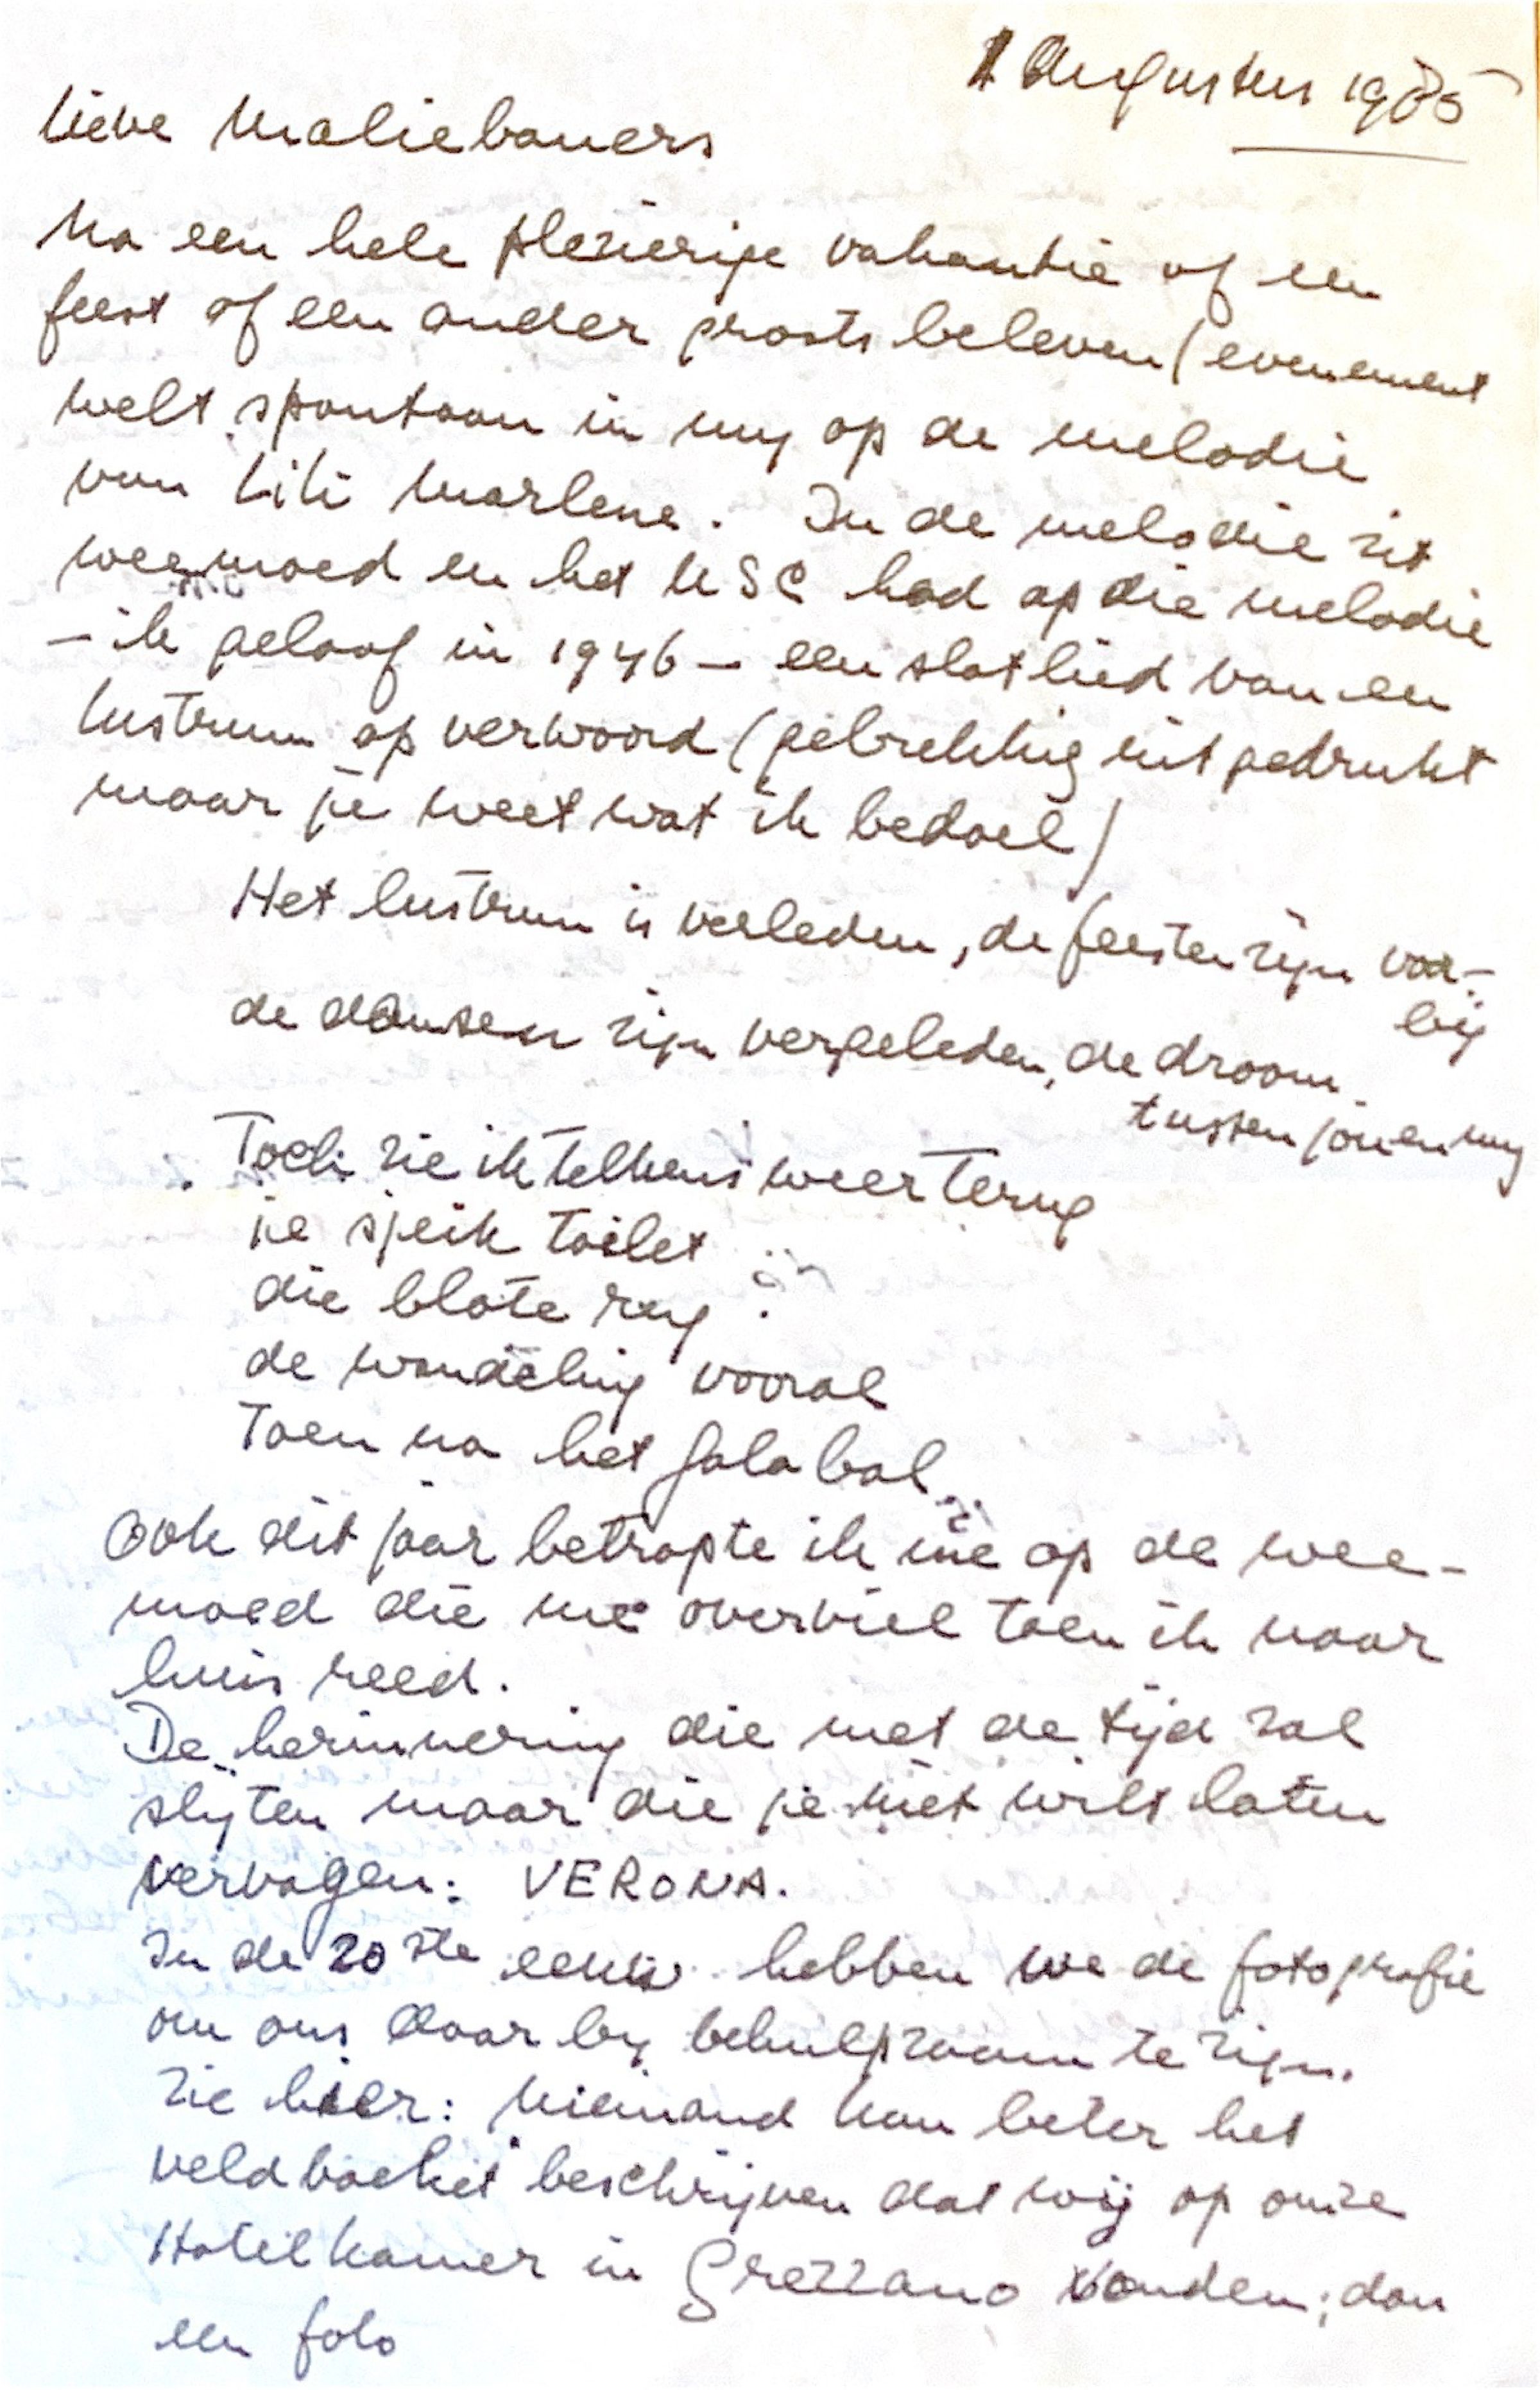 1 Augustus 1985
Lieve Maliebaners
Na een hele plezierige vakantie of een
feest of een ander groots beleven (evenement
welt spontaan in mij op de melodie
van Lili Marlene. In de melodie zit
weemoed en het USC had op die melodie
– ik geloof in 1946 – een slotlied van een
lustrum op verwoord (gebrekkig uitgedrukt
maar je weet wat ik bedoel)
Het lustrum is verleden, de feesten zijn voor-
bij
de dansen zijn vergeleden, de droom
tussen jou en mij
Toch zie ik telkens weer terug
je sjeik toilet
die blote rug
de wandeling vooral
Toen na het galabal..
Ook dit jaar betrapte ik me op de wee-
moed die me overviel toen ik naar
huis reed.
De herinnering die met de tijd zal
slijten maar die je niet wilt laten
vervagen: VERONA.
In de 20ste eeuw hebben we de fotografie
om ons daar bij behulpzaam te zijn.
Zie hier: Niemand kan beter het
veldboeket beschrijven dat wij op onze
Hotelkamer in Grezzano vonden; dan
een foto